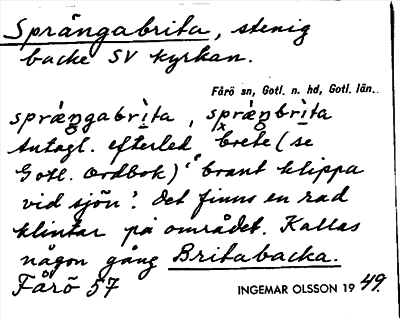 Språngabrita, stenig
backe SV kyrkan.
Fårö sn, Gotl. n. hd, Gotl. län.
språngabrìta, språngbrìta
Antagl. efterled brete (se
Gotl. Ordbok) 'brant klippa
vid sjön'. Det finns en rad
klintar på området. Kallas
någon gång Britabacka.
Fårö 57
INGEMAR OLSSON 1949.